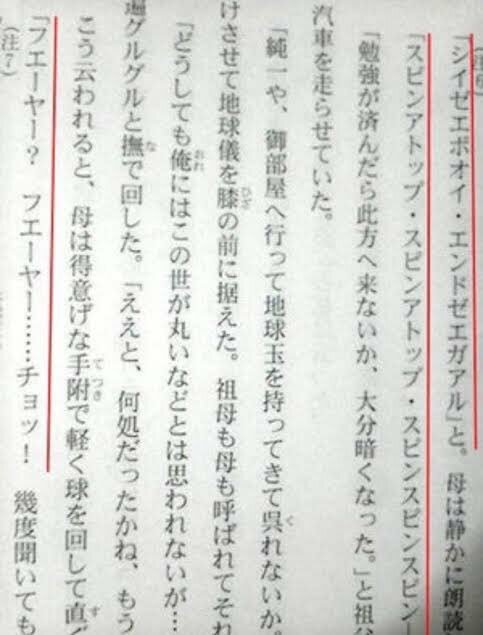 「シイゼエボオイ・エンドゼエガアル」と。母は静かに朗読
「スピンアトップ・スピンアトップ・スピンスピンスピン―
「勉強が済んだら此方へ来ないか、大分暗くなった。」と祖
汽車を走らせていた。
「純一や、御部屋へ行って地球玉を持ってきて呉れないか。
く
けさせて地球儀を膝の前に据えた。祖母も母も呼ばれてそれ
ひざ
「どうしても俺にはこの世が丸いなどとは思われないが…
おれ
遍グルグルと撫で回した。「ええと、何処だったかね、もう
な
こう云われると、母は得意げな手附で軽く球を回して直ぐ
てつき
す
「フエーヤー？　フエーヤー……チョッ！　幾度聞いても
（注7）